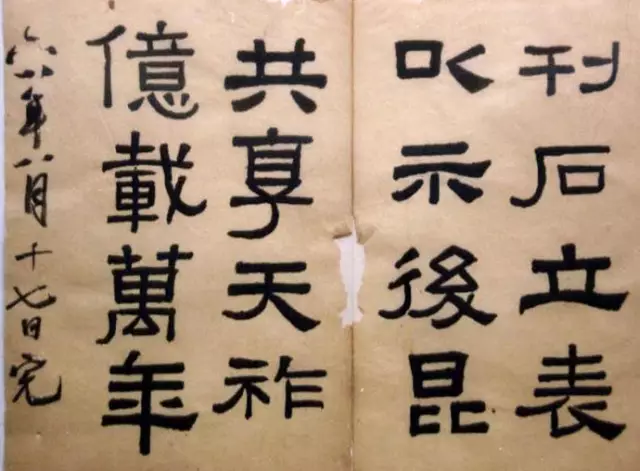 刊石立表
㠯示後昆
共享天祚
億載萬年
六一年八月十七日完